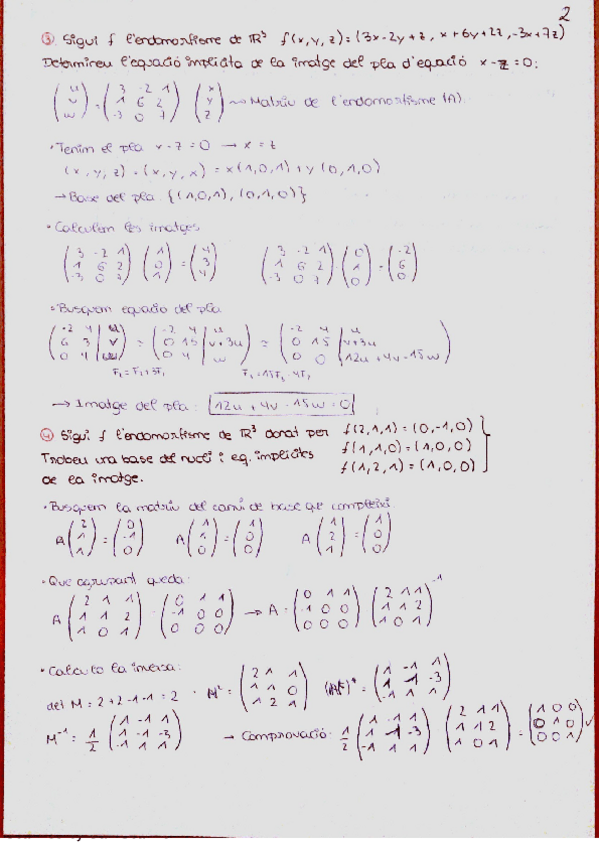 2
③ Sigui f l'endomorfisme de ℝ³ f(x,y,z)=(3x-2y+z, x+6y+2z, -3x+7z)
Determineu l'equació implícita de la imatge del pla d'equació x-z=0:
(u v w) = (3 -2 1; 1 6 2; -3 0 7) (x y z) ~> Matriu de l'endomorfisme (A).
· Tenim el pla x-z=0 → x=z
(x,y,z)=(x,y,x)=x(1,0,1)+y(0,1,0)
→ Base del pla {(1,0,1),(0,1,0)}
· Calculem les imatges
(3 -2 1; 1 6 2; -3 0 7) (1 0 1) = (4 3 4) (3 -2 1; 1 6 2; -3 0 7) (0 1 0) = (-2 6 0)
· Busquem equacio del pla
(-2 4 | u; 6 3 | v; 0 4 | w) ≈ (-2 4 | u; 0 15 | v+3u; 0 4 | w) ≈ (-2 4 | u; 0 15 | v+3u; 0 0 | 12u+4v-15w)
→ Imatge del pla: 12u+4v-15w=0
④ Sigui f l'endomorfisme de ℝ³ donat per f(2,1,1)=(0,-1,0)
f(1,1,0)=(1,0,0)
Trobeu una base del nucli i eq. implícites
f(1,2,1)=(1,0,0)
de la imatge.
· Busquem la matriu del canvi de base que compleixi
A(2 1 1)=(0 -1 0) A(1 1 0)=(1 0 0) A(1 2 1)=(1 0 0)
· Que agrupant queda:
A(2 1 1; 1 1 2; 1 0 1) = (0 1 1; -1 0 0; 0 0 0) → A = (0 1 1; -1 0 0; 0 0 0) (2 1 1; 1 1 2; 1 0 1)⁻¹
· Calculo la inversa:
det M = 2+2-1-1=2 · Mᵗ = (2 1 1; 1 1 0; 1 2 1) = (1 -1 1; 1 1 -3; -1 1 1)
M⁻¹ = 1/2 (1 -1 1; 1 1 -3; -1 1 1) → Comprovació: 1/2 (1 -1 1; 1 1 -3; -1 1 1) (2 1 1; 1 1 2; 1 0 1) = (1 0 0; 0 1 0; 0 0 1) ✓